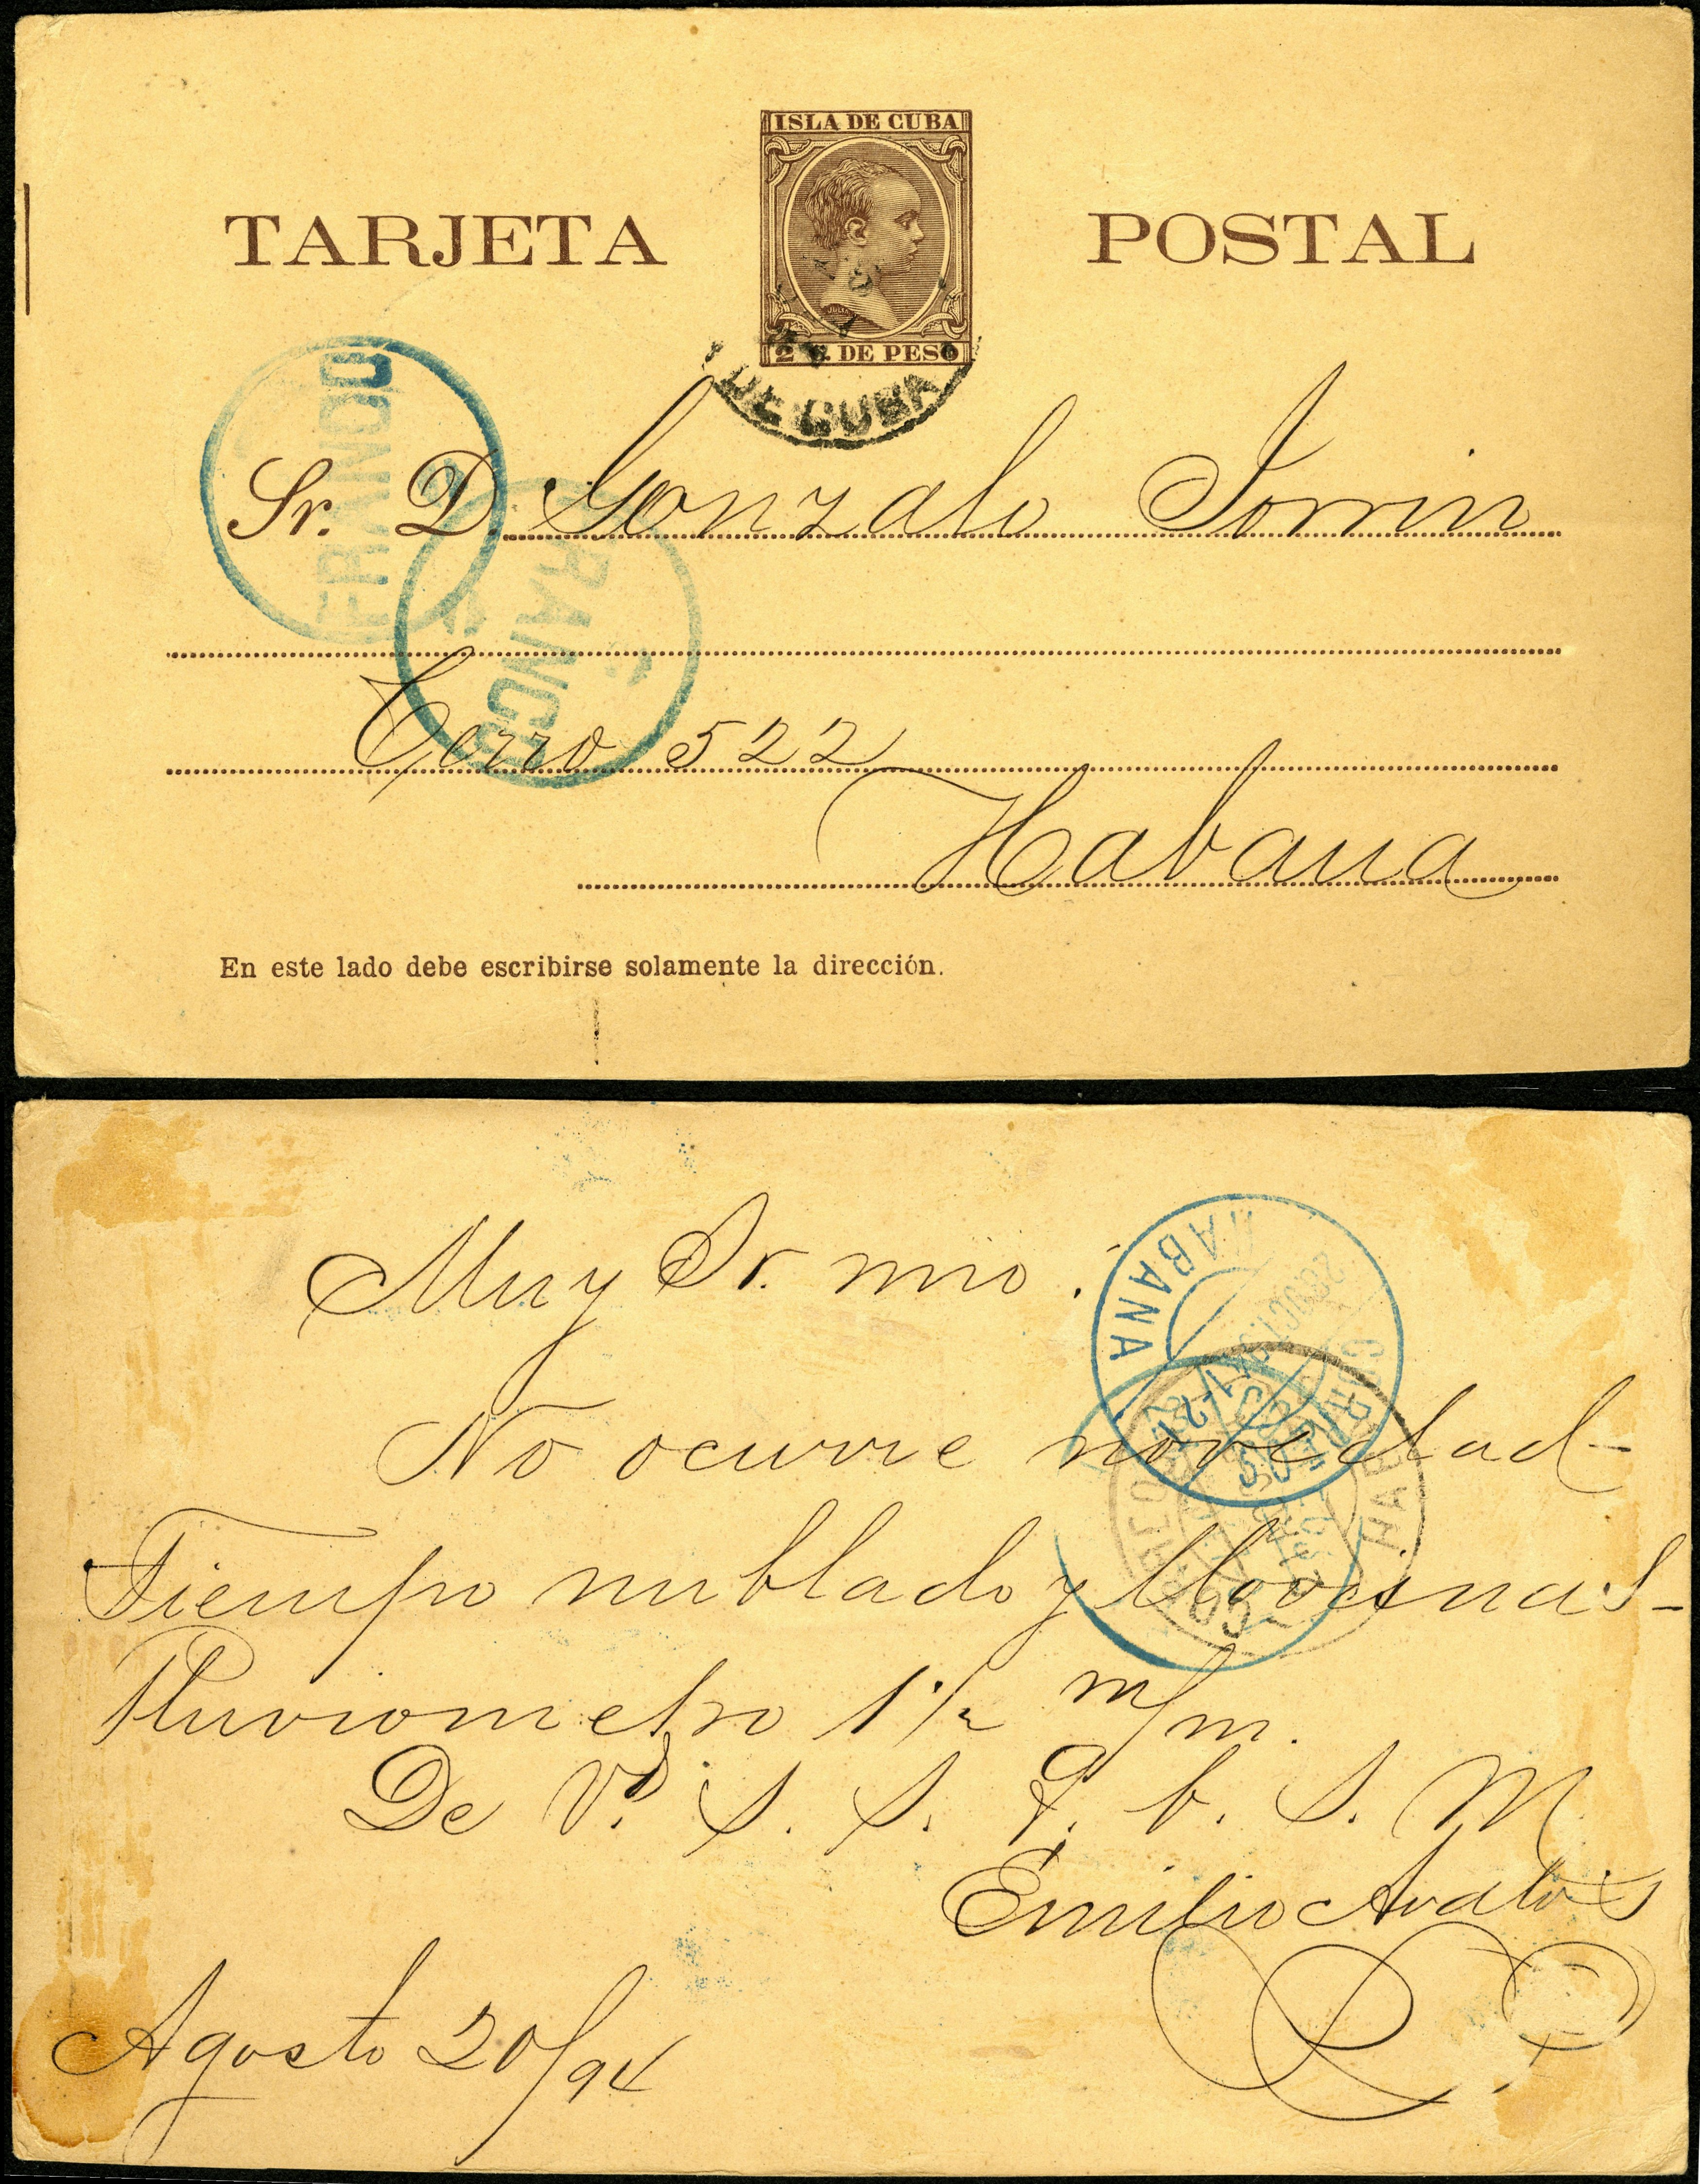 ISLA DE CUBA
TARJETA POSTAL
2 C. DE PESO
DE CUBA
FRANCO
FRANCO
Sr. D. Gonzalo Jorrin
Cerro 522
Habana
En este lado debe escribirse solamente la dirección.
HABANA
Muy Sr. mio:
No ocurre novedad-
Tiempo nublado y lloviznas-
Pluviometro 1 1/2 m/m.
De Vd. S. S. Q. b. S. M
Emilio Avalos
Agosto 20/94